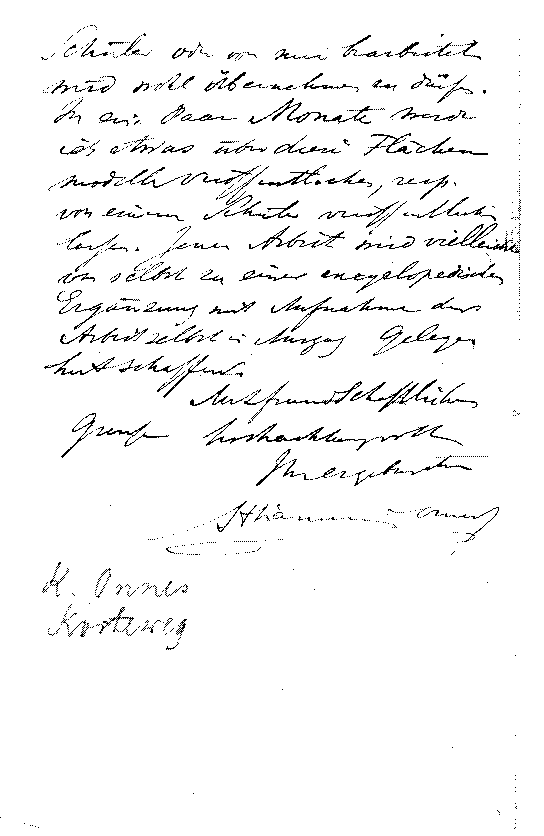 Schüler oder von mir bearbeitet
wird wohl übernehmen zu dürfen.
In ein Paar Monate werde
ich etwas über diese Flächen
modelle veröffentlichen, resp.
von einem Schüler veröffentlichen
lassen. Jener Arbeit wird vielleicht
von selbst zu einer encyclopedischen
Ergänzung mit Aufnahme der
Arbeit selbst in Auszug Gelegen
heit schaffen.
Mit freundschaftlichen
Grüsse hochachtungsvoll
Ihr ergebenster
H Kamerlingh Onnes
K. Onnes
Korteweg